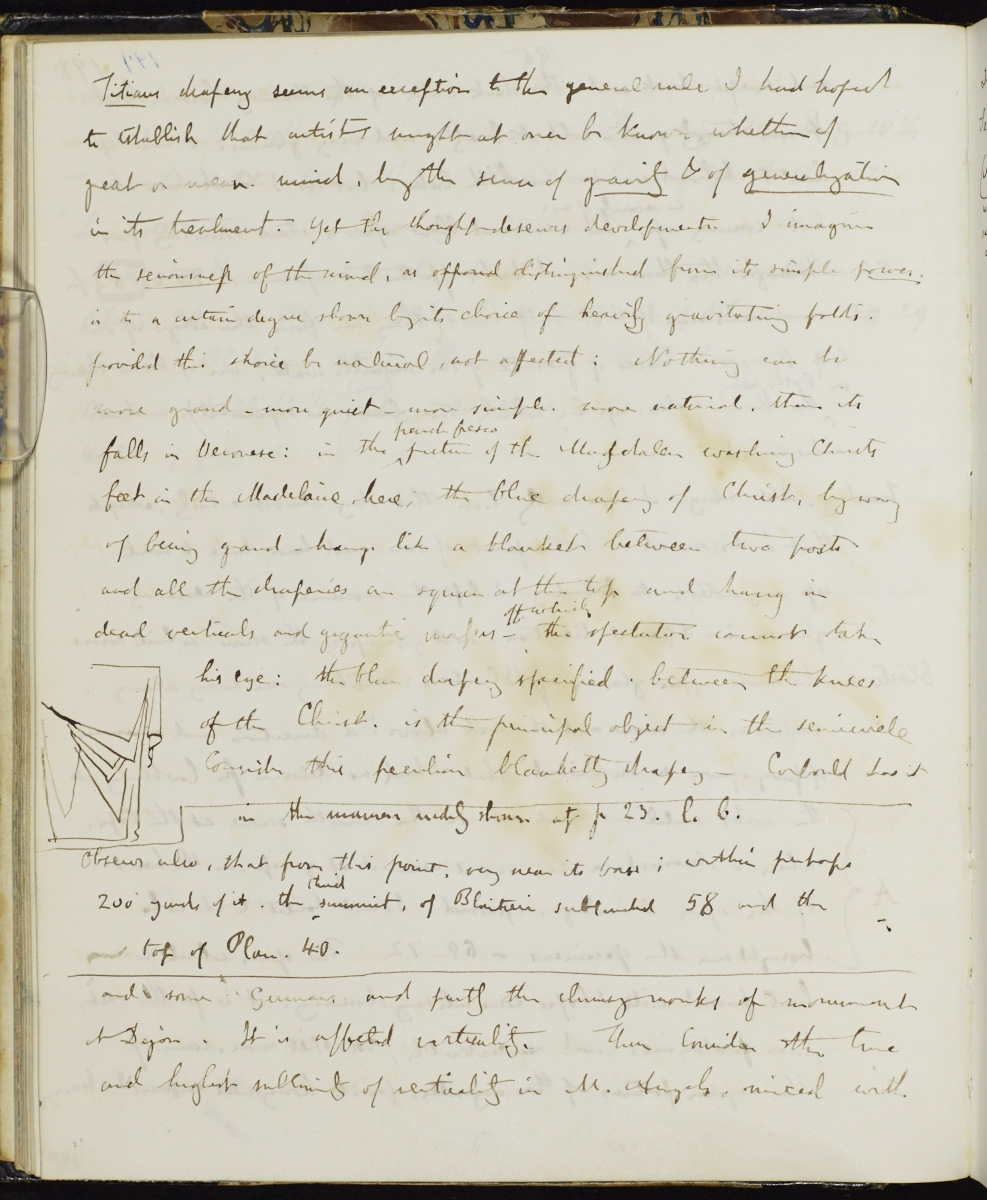 Titians drapery seems an exception to the general rule I had hoped
to establish that artists might at once be known whether of
great or mean mind, by the sense of gravity & of generalization
in its treatment. Yet the thought deserves development I imagine
the seriousness of the mind, as opposed distinguished from its simple power,
is to a certain degree shown by its choice of heavily gravitating folds.
provided this choice be natural, not affected: Nothing can be
more grand - more quiet - more simple. more natural. than its
falls in Veronese: in the
french fresco
picture of the Magdalen washing Christs
feet in the Madelaine, here, the blue drapery of Christ, by way
of being grand - hangs like a blanket between two posts
and all the draperies are square at the top and hang in
dead verticals and gigantic masses -
off which
the spectator cannot take
his eye: the blue drapery specified. between the knees
of the Christ. is the principal object in the semicircle
Consider this peculiar blanketty drapery - Corbould has it
in the manner rudely shown at p 23. l. 6.
Observe also, that from this point, very near its base; within perhaps
200 yards of it. the
third
summit, of Blaitiere subtended 58 and the
top of Plan. 40.
and some Germans and partly the clumsy monks of monument
at Dijon. It is affected verticality. Then Consider the true
and highest sublimity of verticality in M. Angelo, mixed with